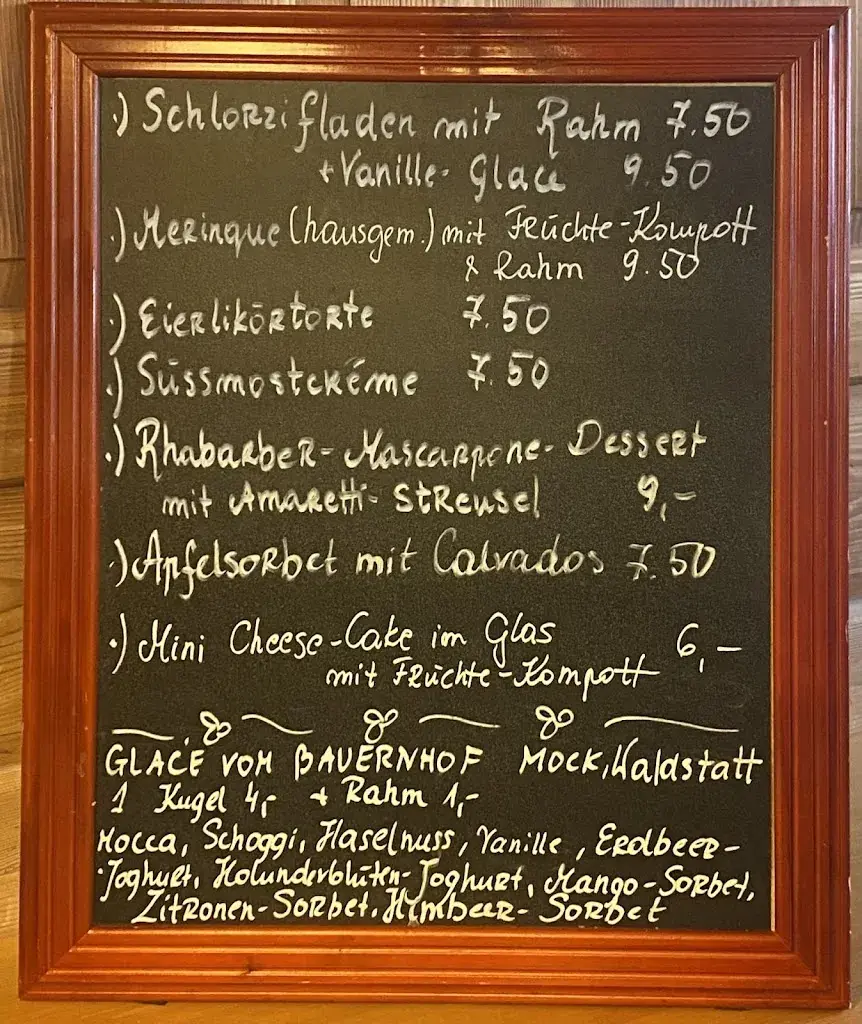 ·) Schlorzifladen mit Rahm 7.50
+ Vanille-Glacé 9.50
·) Meringue (hausgem.) mit Früchte-Kompott
& Rahm 9.50
·) Eierlikörtorte 7.50
·) Süssmostcréme 7.50
·) Rhabarber-Mascarpone-Dessert
mit Amaretti-Streusel 9,-
·) Apfelsorbet mit Calvados 7.50
·) Mini Cheese-Cake im Glas 6,-
mit Früchte-Kompott
GLACÉ VOM BAUERNHOF MOCK, Waldstatt
1 Kugel 4,- + Rahm 1,-
Mocca, Schoggi, Haselnuss, Vanille, Erdbeer-
Joghurt, Holunderblüten-Joghurt, Mango-Sorbet,
Zitronen-Sorbet, Himbeer-Sorbet